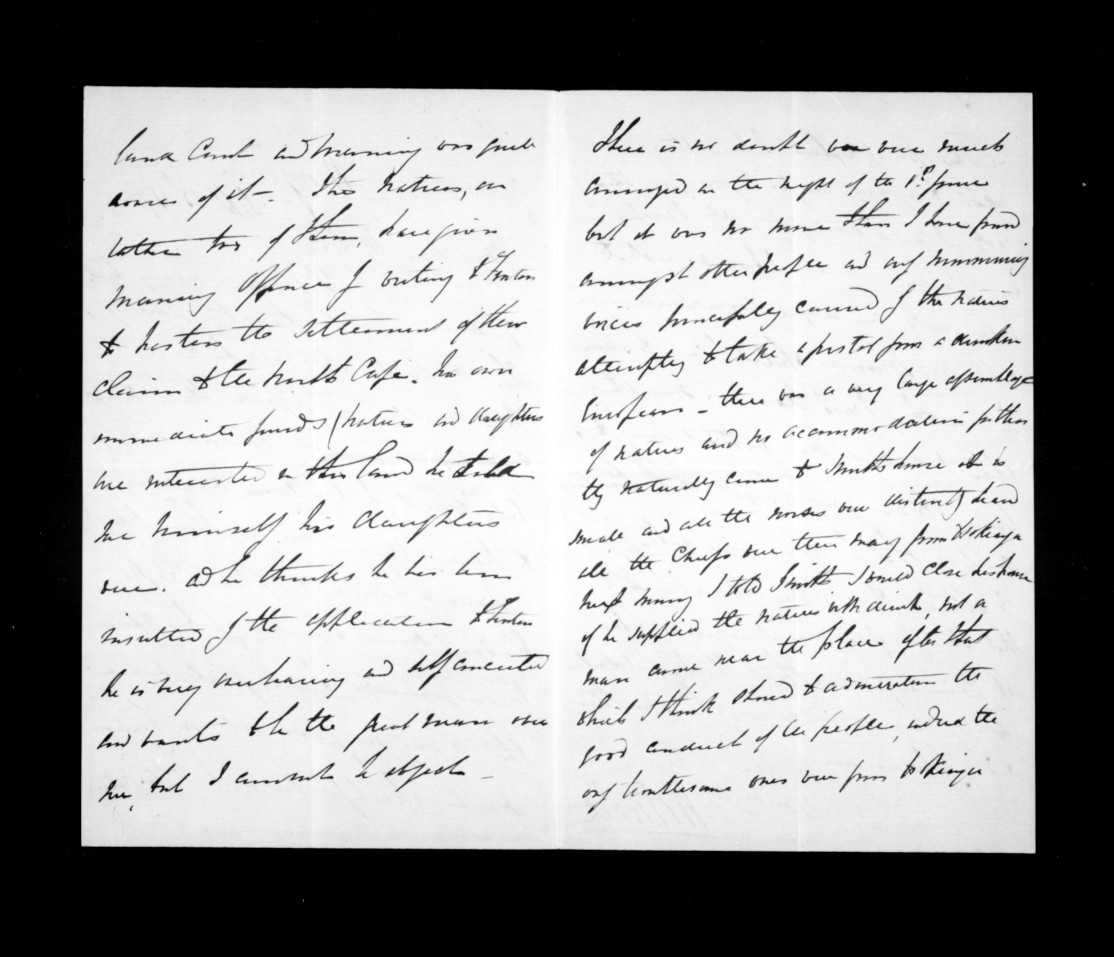 Land Court and Maning was quite
aware of it - The Natives, or
rather two of them, have given
Maning offence by writing to Fenton
to hasten the settlement of their
claims to the North Cape. his own
immediate friends (natives and daughters
are interested in this land he told
me himself his daughters
were. and he thinks he has been
insulted by the application to Fenton
he is very overbearing and self conceited
and wants to be the great man over
me, but I cannot be object -
There is no doubt we were much
annoyed on the night of the 1st
but it was no more than I have found
amongst other people and only
voices principally caused by the natives
attempting to take a pistol from a drunken
European - there was a very large assemblage
of natives and no accommodation for them
they naturally came to Smiths house it is
small and all the noises were distinctly heard
all the Chiefs were there many from Hokianga
next morning I told Smith I would close his house
if he supplied the natives with drink, not a
man came near the place after that
which I think showed to admiration the
good conduct of the people, indeed the
only troublesome ones were from Hokianga